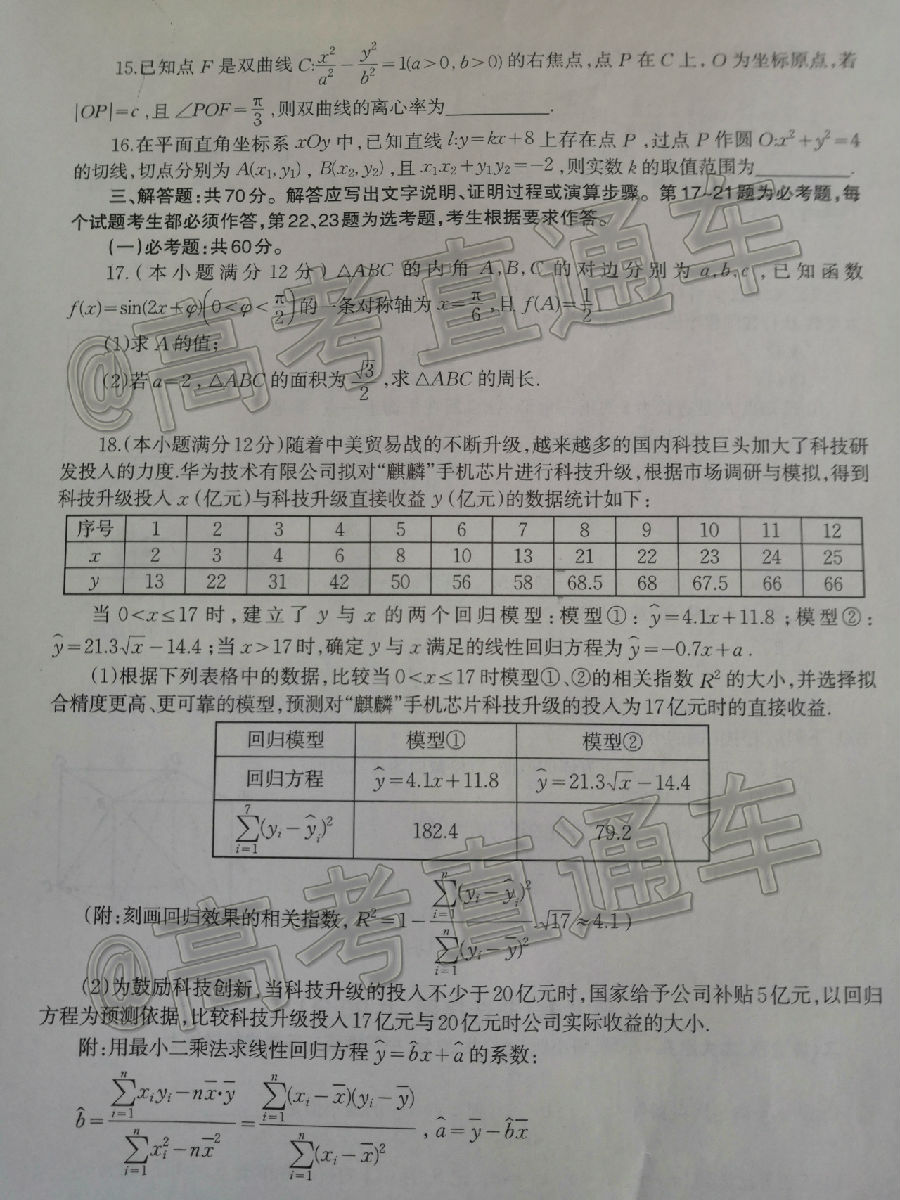 15.已知点 F 是双曲线 C:x²/a² - y²/b² =1(a>0,b>0) 的右焦点,点 P 在 C 上,O 为坐标原点,若
|OP|=c ,且 ∠POF= π/3 ,则双曲线的离心率为________.
16.在平面直角坐标系 xOy 中,已知直线 l:y=kx+8 上存在点 P ,过点 P 作圆 O:x²+y²=4
的切线,切点分别为 A(x₁,y₁) , B(x₂,y₂) ,且 x₁x₂+y₁y₂=-2 ,则实数 k 的取值范围为________.
三、解答题:共70分。解答应写出文字说明、证明过程或演算步骤。第17~21题为必考题,每
个试题考生都必须作答,第22、23题为选考题,考生根据要求作答。
(一)必考题:共60分。
17.(本小题满分12分) △ABC 的内角 A,B,C 的对边分别为 a,b,c ,已知函数
f(x)=sin(2x+φ)(0<φ<π/2)的一条对称轴为 x=π/6 ,且 f(A)=1/2.
(1)求 A 的值;
(2)若 a=2 , △ABC 的面积为 √3/2 ,求 △ABC 的周长.
18.(本小题满分12分)随着中美贸易战的不断升级,越来越多的国内科技巨头加大了科技研
发投入的力度.华为技术有限公司拟对“麒麟”手机芯片进行科技升级,根据市场调研与模拟,得到
科技升级投入 x (亿元)与科技升级直接收益 y (亿元)的数据统计如下:
序号 1 2 3 4 5 6 7 8 9 10 11 12
x 2 3 4 6 8 10 13 21 22 23 24 25
y 13 22 31 42 50 56 58 68.5 68 67.5 66 66
当 0<x≤17 时,建立了 y 与 x 的两个回归模型:模型①: ŷ=4.1x+11.8 ;模型②:
ŷ=21.3√x-14.4 ;当 x>17 时,确定 y 与 x 满足的线性回归方程为 ŷ=-0.7x+a .
(1)根据下列表格中的数据,比较当 0<x≤17 时模型①、②的相关指数 R² 的大小,并选择拟
合精度更高、更可靠的模型,预测对“麒麟”手机芯片科技升级的投入为17亿元时的直接收益.
回归模型 模型① 模型②
回归方程 ŷ=4.1x+11.8 ŷ=21.3√x-14.4
∑_{i=1}^{7}(yᵢ-ŷᵢ)² 182.4 79.2
(附:刻画回归效果的相关指数, R²=1- ∑_{i=1}^{n}(yᵢ-ŷᵢ)² / ∑_{i=1}^{n}(yᵢ-ȳ)² √17≈4.1)
(2)为鼓励科技创新,当科技升级的投入不少于20亿元时,国家给予公司补贴5亿元,以回归
方程为预测依据,比较科技升级投入17亿元与20亿元时公司实际收益的大小.
附:用最小二乘法求线性回归方程 ŷ=b̂x+â 的系数:
b̂= (∑_{i=1}^{n}xᵢyᵢ-nx̄·ȳ) / (∑_{i=1}^{n}xᵢ²-nx̄²) = ∑_{i=1}^{n}(xᵢ-x̄)(yᵢ-ȳ) / ∑_{i=1}^{n}(xᵢ-x̄)² , â=ȳ-b̂x̄
@高考直通车
@高考直通车